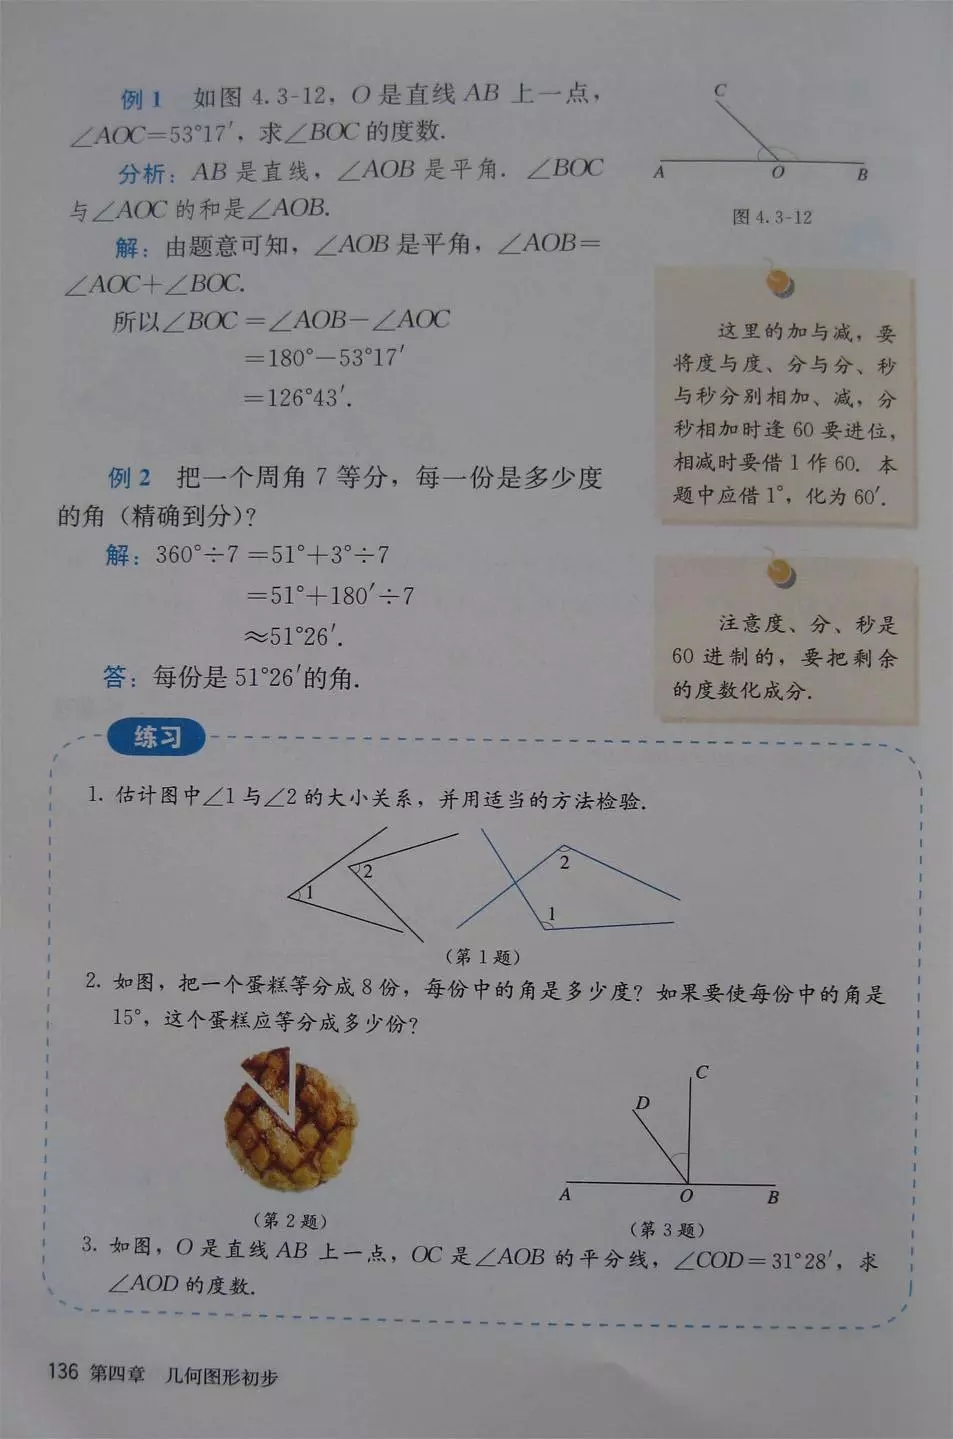 例1 如图 4.3-12，O 是直线 AB 上一点，
∠AOC=53°17′，求∠BOC 的度数.
分析：AB 是直线，∠AOB 是平角. ∠BOC
与∠AOC 的和是∠AOB.
解：由题意可知，∠AOB 是平角，∠AOB=
∠AOC+∠BOC.
所以∠BOC =∠AOB-∠AOC
=180°-53°17′
=126°43′.
C
A
O
B
图 4.3-12
这里的加与减，要
将度与度、分与分、秒
与秒分别相加、减，分
秒相加时逢 60 要进位，
相减时要借 1 作 60. 本
题中应借 1°，化为 60′.
例2 把一个周角 7 等分，每一份是多少度
的角（精确到分）？
解：360°÷7 =51°+3°÷7
=51°+180′÷7
≈51°26′.
答：每份是 51°26′的角.
注意度、分、秒是
60 进制的，要把剩余
的度数化成分.
练习
1. 估计图中∠1 与∠2 的大小关系，并用适当的方法检验.
1
2
2
1
（第 1 题）
2. 如图，把一个蛋糕等分成 8 份，每份中的角是多少度？如果要使每份中的角是
15°，这个蛋糕应等分成多少份？
C
D
A
O
B
（第 2 题）
（第 3 题）
3. 如图，O 是直线 AB 上一点，OC 是∠AOB 的平分线，∠COD=31°28′，求
∠AOD 的度数.
136 第四章 几何图形初步